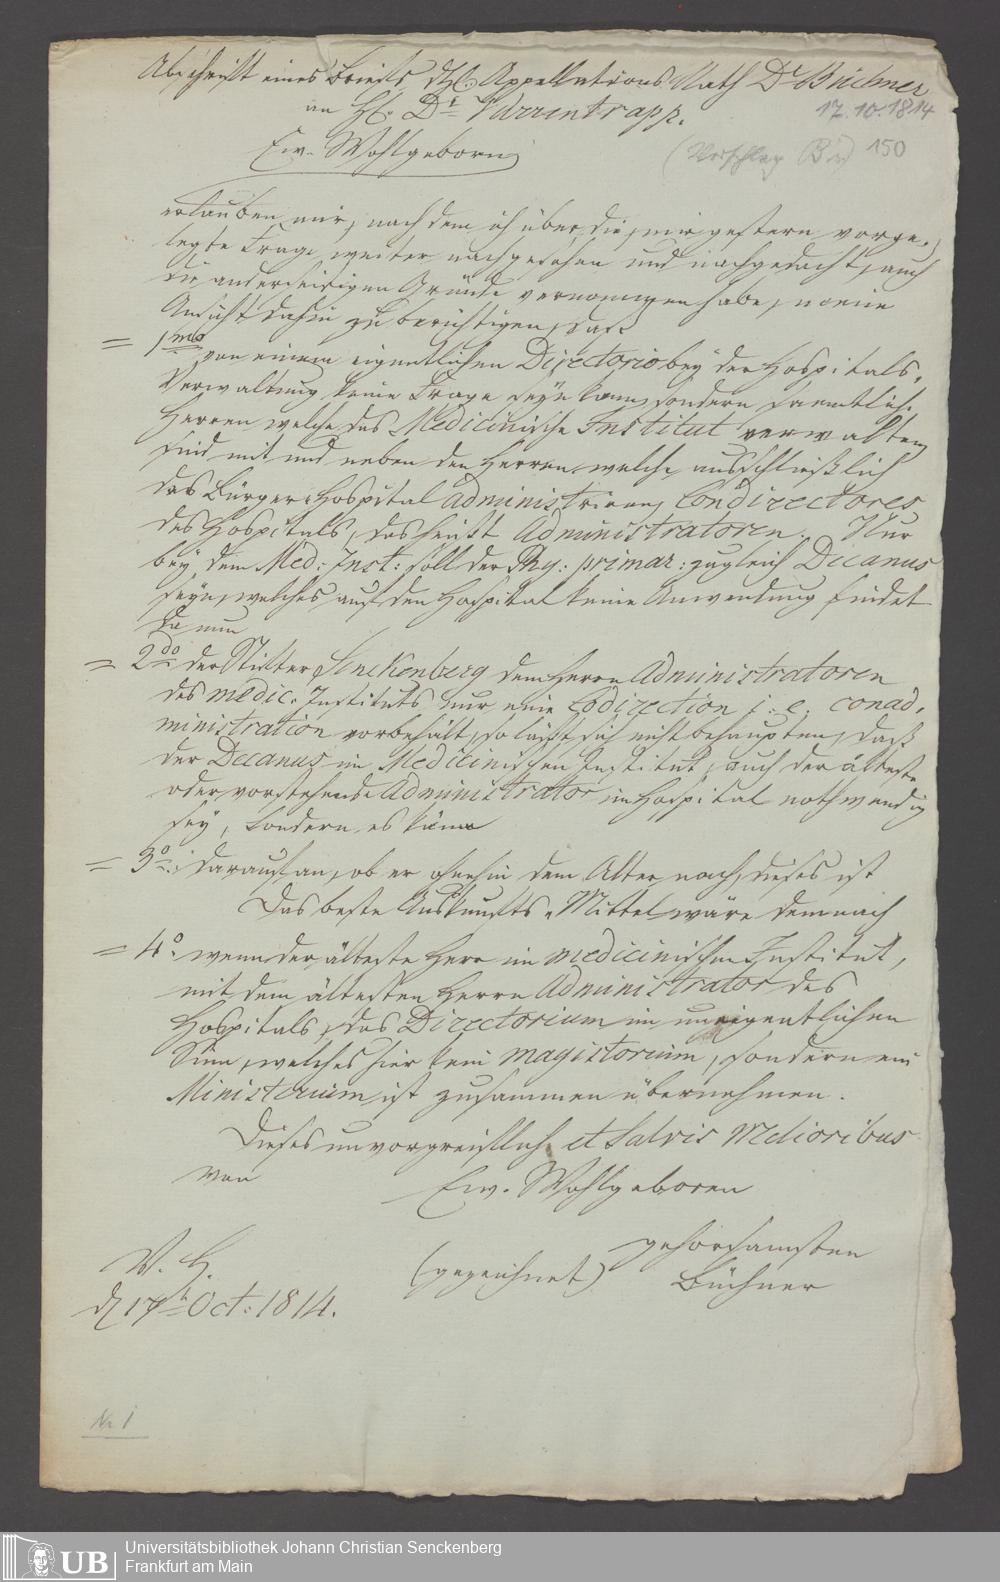 Abschrift eines Briefs d. H. Appellations Rath Dr Büchner
an H. Dr Varrentrapp.
17.10.1814
(Vorschlag B.) 150
Ew. Wohlgeborn
erlauben mir, nach dem ich über die mir gestern vorge-
legte Frage weiter nachgesehen und nachgedacht, auch
die anderseitigen Gründe vernommen habe, meine
Ansicht dahin zu berichtigen, daß
= 1mo von einem eigentlichen Directorio bey der Hospitals-
Verwaltung keine Frage seyn kann, sondern saemtliche
Herren welche das Medicinische Institut verwalten
sind mit und neben den Herren, welche ausschließlich
das Bürger-Hospital administriren, Condirectores
des Hospitals, das heißt Administratoren. Nur
bey dem Med: Inst: soll der Phy: primar: zugleich Decanus
seyn, welches auf den Hospital keine Anwendung findet
da nun
= 2do der Stifter Senckenberg dem Herrn Administratoren
des medic. Instituts nur eine Codirection i: e: conad-
ministration vorbehält, so läßt sich nicht behaupten, daß
der Decanus im Medicinischen Institut, auch der älteste
oder vorstehende Administrator im Hospital nothwendig
sey, sondern es käme
= 3o: darauf an, ob er ohnehin dem Alter nach, dieses ist
Das beste Auskunfts-Mittel wäre demnach
= 4o. wenn der älteste Herr im medicinischen Institut,
mit dem ältesten Herrn Administrator des
Hospitals, das Directorium im uneigentlichen
Sinn, welches hier kein magistorium, sondern ein
Ministerium ist zusammen übernehmen.
Dieses unvorgreiflich et salvis Melioribus
von
Ew. Wohlgeboren
gehorsamsten
V. H.
(gezeichnet) Büchner
d 17t Oct: 1814.
No 1
UB Universitätsbibliothek Johann Christian Senckenberg
Frankfurt am Main